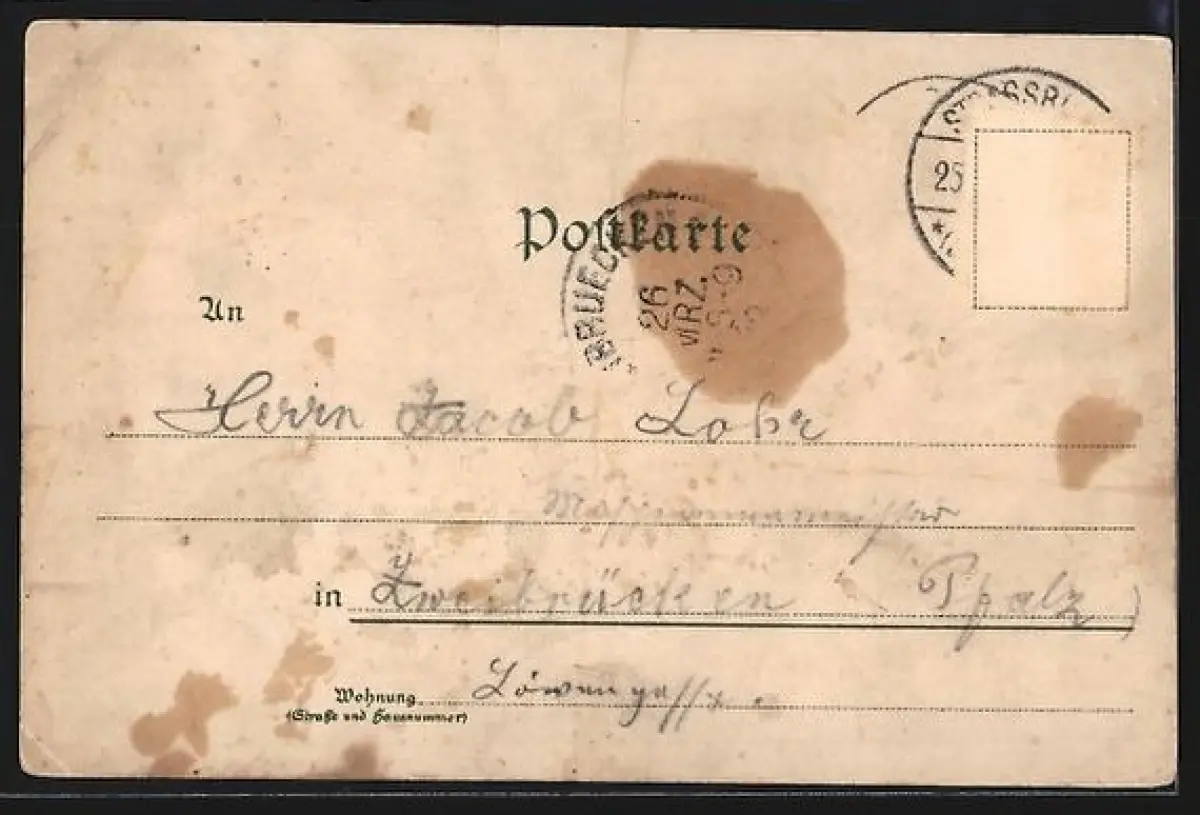 STRASSB
25
Postkarte
BRUECK
26
MRZ.
8-9
An
Herrn Jacob Lohr
in Zweibrücken (Pfalz)
Wohnung Löwengasse.
(Straße und Hausnummer)